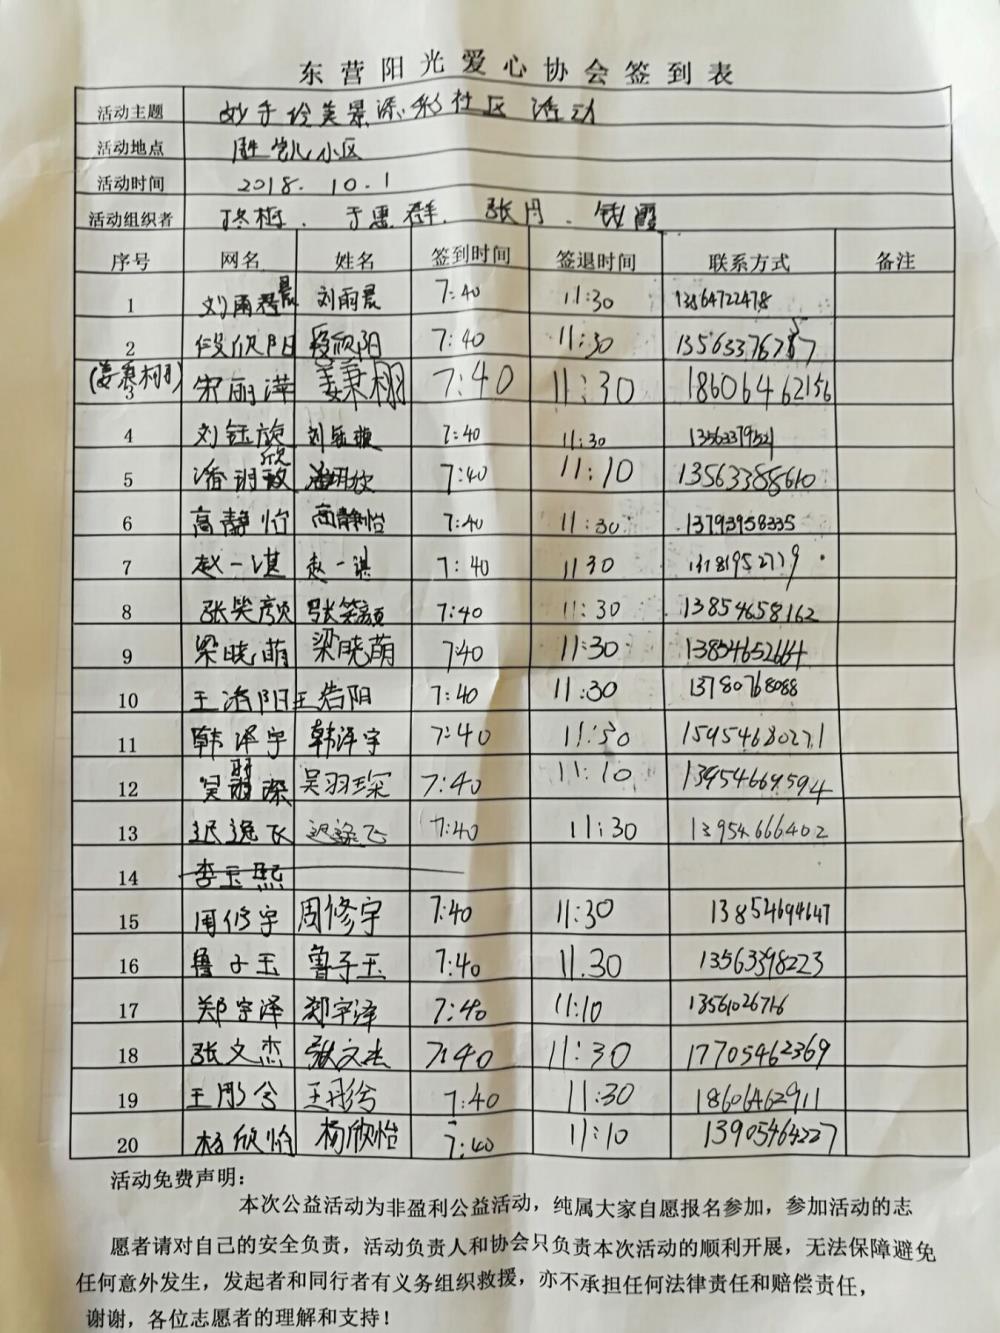 东营阳光爱心协会签到表
活动主题 妙手绘美景添彩社区活动
活动地点 胜凯小区
活动时间 2018. 10. 1
活动组织者 于惠群. 张丹. 钱霞
序号 网名 姓名 签到时间 签退时间 联系方式 备注
1 刘雨晨 刘雨晨 7:40 11:30 13864722478
2 段欣阳 段欣阳 7:40 11:30
(姜秉栩)
3 宋丽萍 姜秉栩 7:40 11:30 18606462156
4 刘钰旋 刘钰旋 7:40 11:30
5 潘玥欣 潘玥欣 7:40 11:10 13563388610
6 高静怡 高静怡 7:40 11:30 13793958335
7 赵一湛 赵一湛 7:40 11 30
8 张笑颜 张笑颜 7:40 11:30 13854658162
9 梁晓萌 梁晓萌 7:40 11:30 13854652664
10 王浩阳 王浩阳 7:40 11:30 13780768088
11 韩泽宇 韩泽宇 7:40 11:30 15954680271
12 吴羽琛 吴羽琛 7:40 11:10 13954669594
13 迟逸飞 迟逸飞 7:40 11:30 13954666402
14 李玉熙
15 周修宇 周修宇 7:40 11:30 13854694647
16 鲁子玉 鲁子玉 7:40 11.30 13563398223
17 郑宇泽 郑宇泽 7:40 11:10
18 张文杰 张文杰 7:40 11:30 17705462369
19 王彤兮 王彤兮 7:40 11:30 18606462911
20 杨欣怡 杨欣怡 7:40 11:10 13905464227
活动免费声明：
本次公益活动为非盈利公益活动，纯属大家自愿报名参加，参加活动的志
愿者请对自己的安全负责，活动负责人和协会只负责本次活动的顺利开展，无法保障避免
任何意外发生，发起者和同行者有义务组织救援，亦不承担任何法律责任和赔偿责任，
谢谢，各位志愿者的理解和支持！